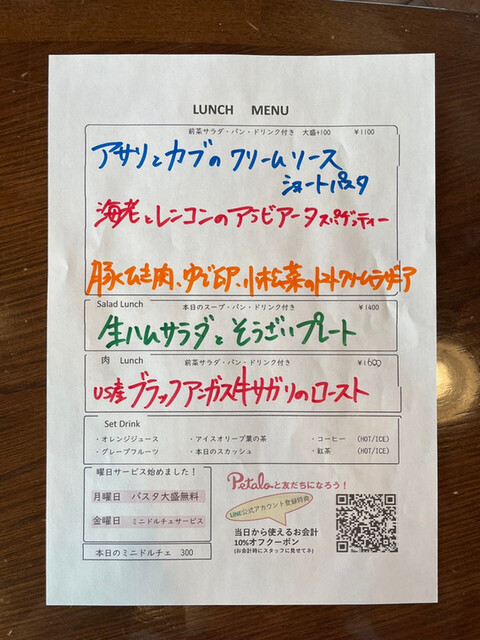 LUNCH MENU
前菜サラダ・パン・ドリンク付き 大盛+100 ¥1100
アサリとカブのクリームソース
ショートパスタ
海老とレンコンのアラビアータスパゲッティー
豚ひき肉、ゆで卵、小松菜のトマトクリームラザニア
Salad Lunch 本日のスープ・パン・ドリンク付き ¥1400
生ハムサラダとそうざいプレート
肉 Lunch 前菜サラダ・パン・ドリンク付き ¥1600
US産ブラックアンガス牛サガリのロースト
Set Drink
・オレンジジュース ・アイスオリーブ葉の茶 ・コーヒー (HOT/ICE)
・グレープフルーツ ・本日のスカッシュ ・紅茶 (HOT/ICE)
曜日サービス始めました!
月曜日 パスタ大盛無料
金曜日 ミニドルチェサービス
本日のミニドルチェ 300
Petaloと友だちになろう!
LINE公式アカウント登録特典
当日から使えるお会計
10%オフクーポン
(お会計時にスタッフに見せてネ)